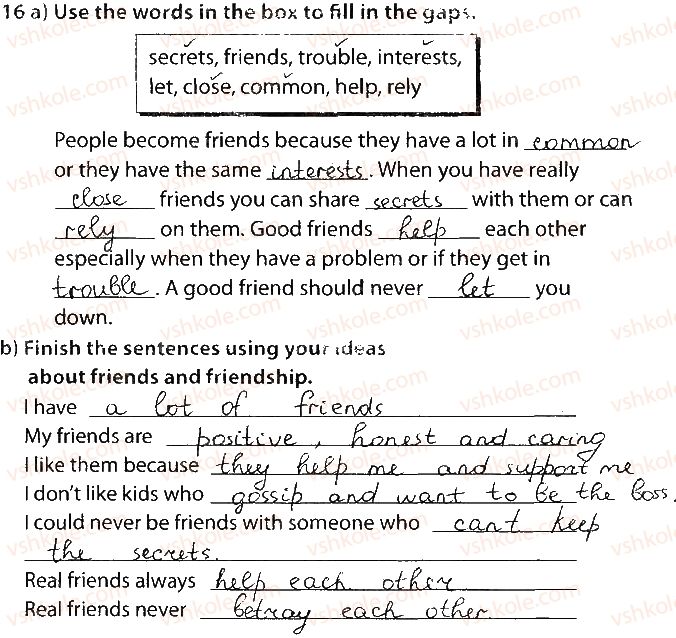 16 a) Use the words in the box to fill in the gaps.
secrets, friends, trouble, interests,
let, close, common, help, rely
People become friends because they have a lot in common
or they have the same interests. When you have really
close friends you can share secrets with them or can
rely on them. Good friends help each other
especially when they have a problem or if they get in
trouble. A good friend should never let you
down.
b) Finish the sentences using your ideas
about friends and friendship.
I have a lot of friends
My friends are positive, honest and caring
I like them because they help me and support me
I don't like kids who gossip and want to be the boss.
I could never be friends with someone who can't keep
the secrets.
Real friends always help each other
Real friends never betray each other.
vshkole.com